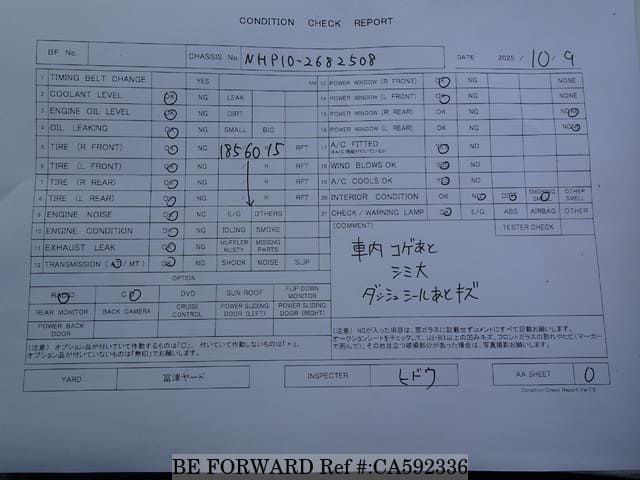 CONDITION CHECK REPORT
BF No. CHASSIS No. NHP10-2682508 DATE 2025 / 10 / 9
1 TIMING BELT CHANGE YES KM
2 COOLANT LEVEL OK NG LEAK
3 ENGINE OIL LEVEL OK NG DIRT
4 OIL LEAKING OK NG SMALL BIG
5 TIRE (R FRONT) OK NG 185 60 15 RFT
6 TIRE (L FRONT) OK NG / R RFT
7 TIRE (R REAR) OK NG / R RFT
8 TIRE (L REAR) OK NG / R RFT
9 ENGINE NOISE OK NG E/G OTHERS
10 ENGINE CONDITION OK NG IDLING SMOKE
11 EXHAUST LEAK OK NG MUFFLER RUSTY MISSING PARTS
12 TRANSMISSION (A/MT) OK NG SHOCK NOISE SLIP
OPTION
RADIO CD DVD SUN ROOF FLIP DOWN MONITOR
REAR MONITOR BACK CAMERA CRUISE CONTROL POWER SLIDING DOOR (LEFT) POWER SLIDING DOOR (RIGHT)
POWER BACK DOOR
(注意) オプション品が付いていて作動するものは「○」、付いていて作動しないものは「×」、
オプション品が付いていないものは「無印」でお願いします。
13 POWER WINDOW (R FRONT) OK NG NONE
14 POWER WINDOW (L FRONT) OK NG NONE
15 POWER WINDOW (R REAR) OK NG NONE
16 POWER WINDOW (L REAR) OK NG NONE
17 A/C FITTED YES NO
18 WIND BLOWS OK YES NO
19 A/C COOLS OK YES NO
20 INTERIOR CONDITION OK NG DIRT SMOKING SMELL OTHER SMELL
21 CHECK / WARNING LAMP OK E/G ABS AIRBAG OTHER
(COMMENT) TESTER CHECK
車内 コゲあと
シミ大
ダッシュ シールあとキズ
(注意) NGが入った項目は、窓ガラスに記載せずコメントにすべて記載お願いします。
オークションシートをチェックして、U3・B3以上の凹みキズ、フロントガラスの割れやヒビ(マーカー
で囲んで)、その他目立つ破損部分があった場合は、写真撮影お願いします。
YARD 富津ヤード INSPECTER ヒドウ AA SHEET 0
Condition Check Report Ver.7.0
BE FORWARD Ref #:CA592336